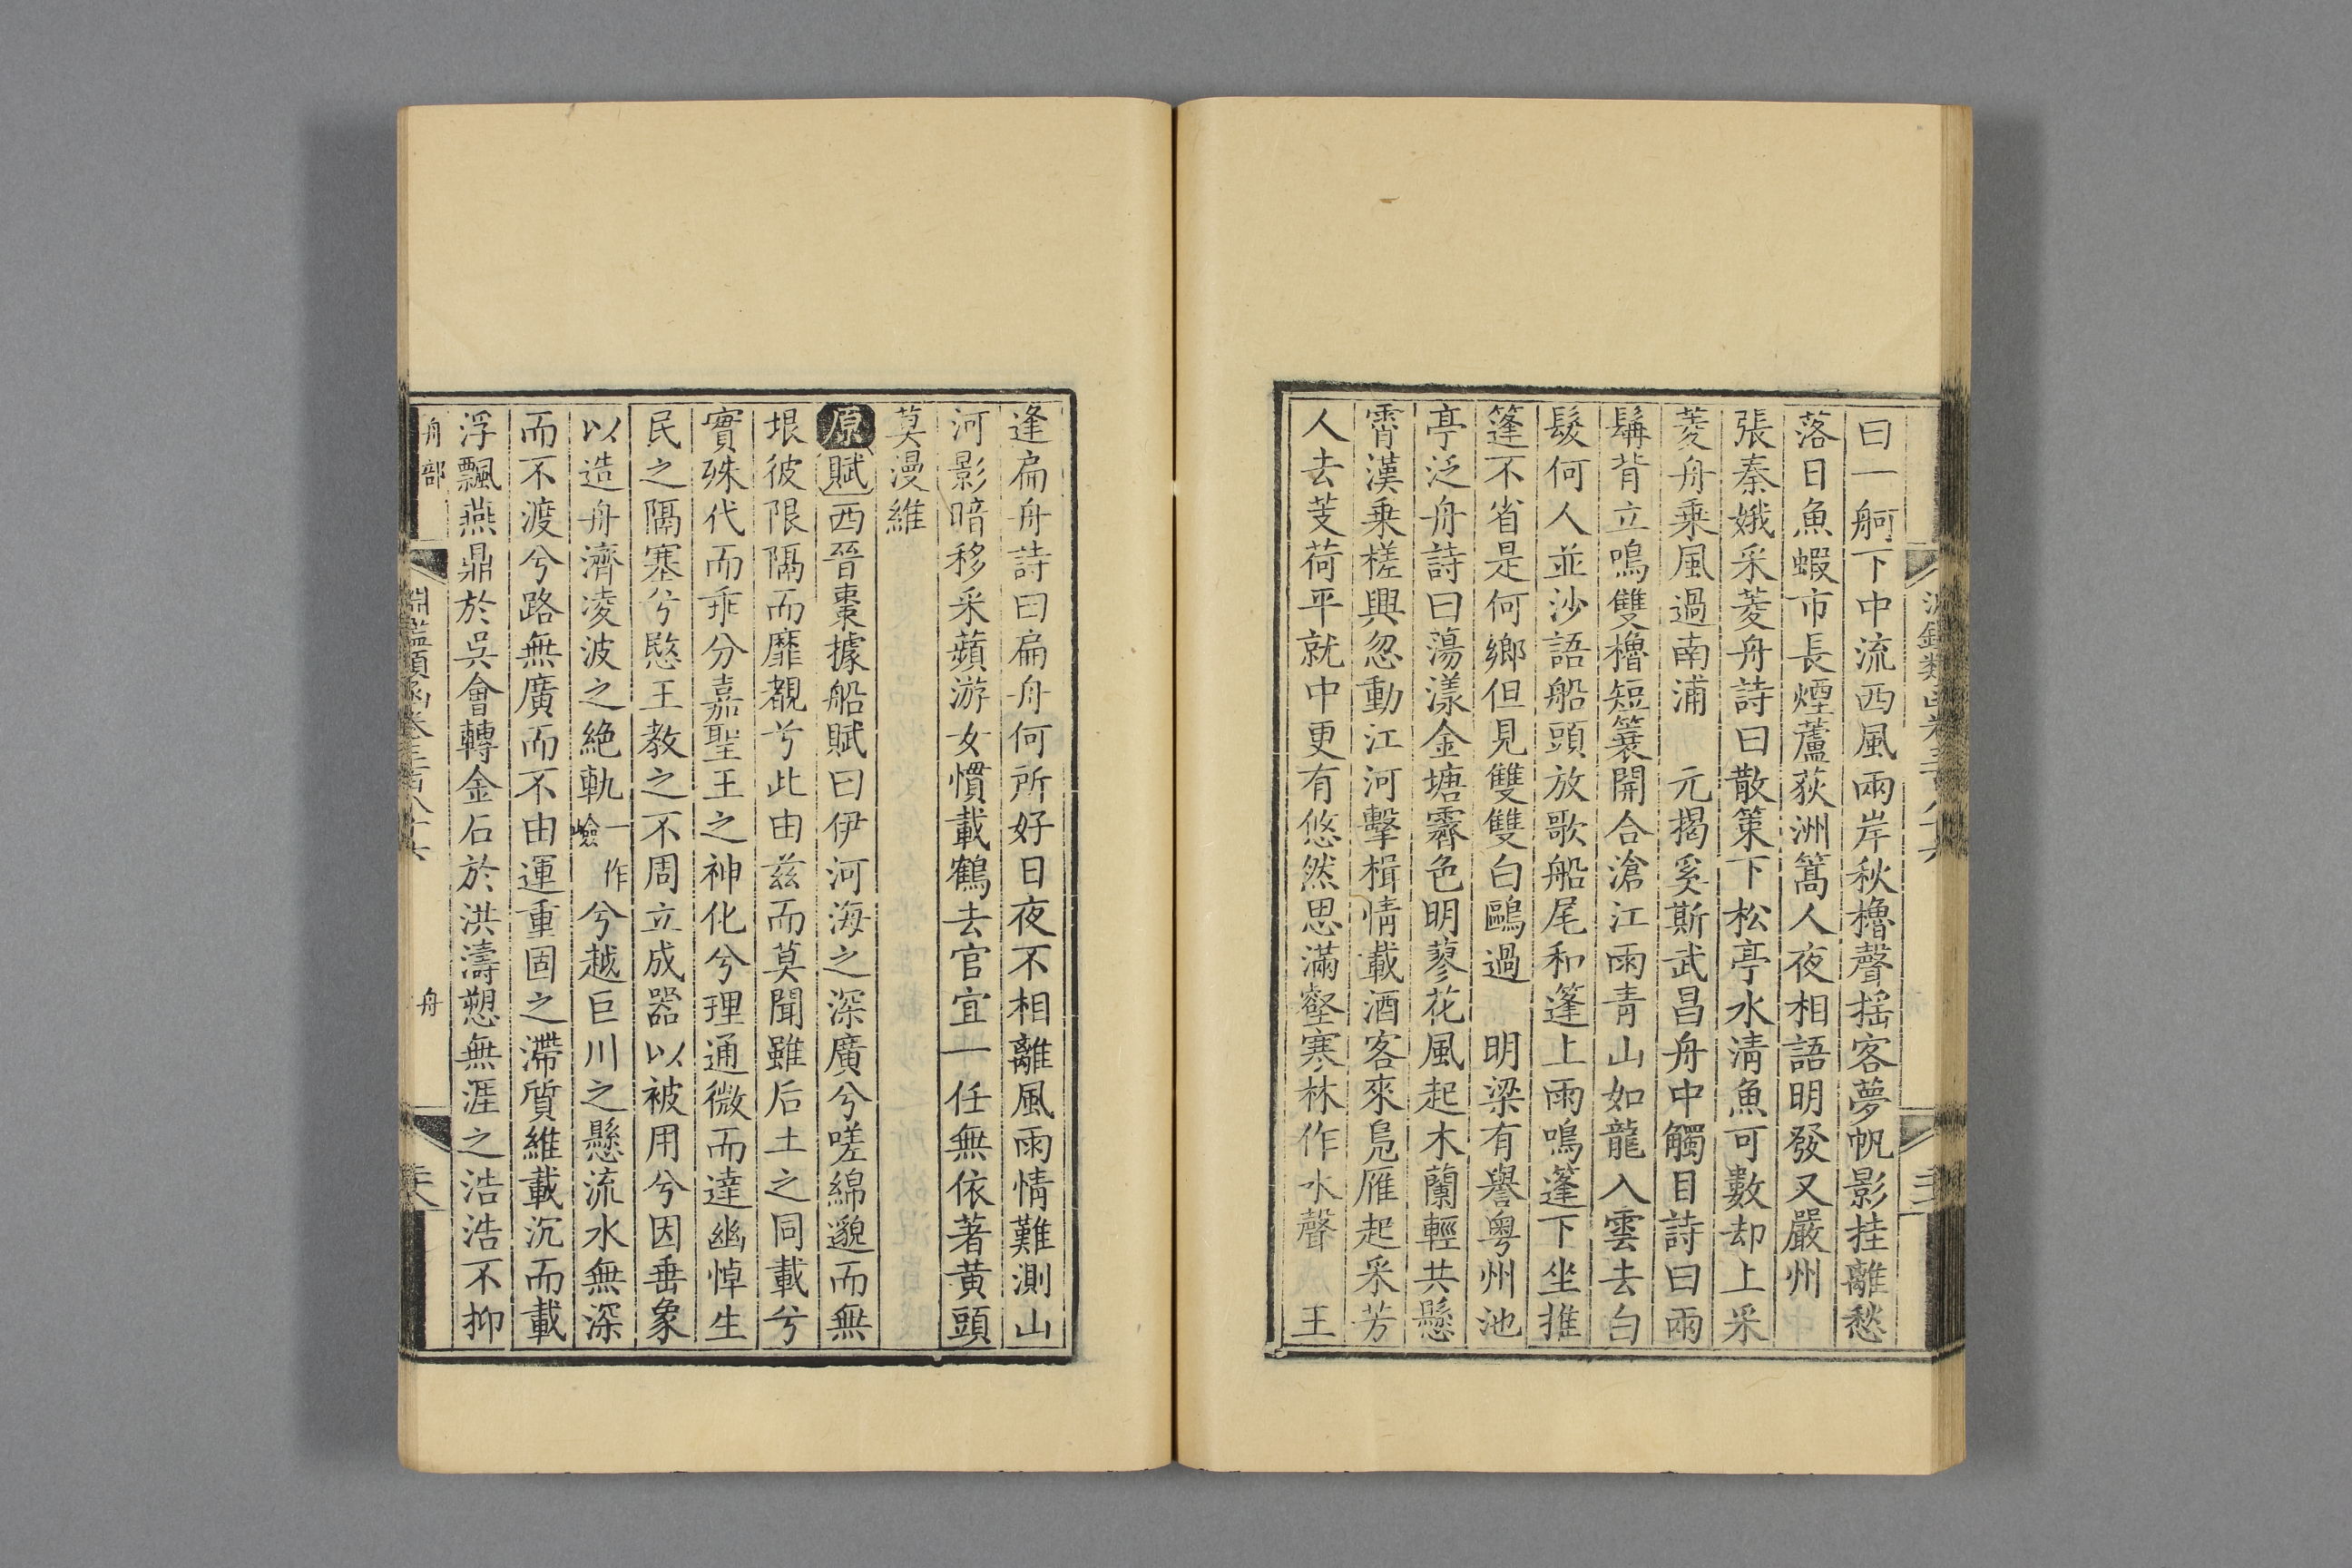 曰一舸下中流西風兩岸秋櫓聲揺客夢帆影挂離愁
落日魚蝦市長煙蘆荻洲篙人夜相語明發又嚴州
張秦娥采菱舟詩曰散策下松亭水淸魚可數却上采
菱舟乗風過南浦 元揭奚斯武昌舟中觸目詩曰兩
髯背立鳴雙櫓短簑開合滄江雨青山如龍入雲去白
髮何人並沙語船頭放歌船尾和篷上雨鳴篷下坐推
篷不省是何鄉但見雙雙白鷗過 明梁有譽粤州池
亭泛舟詩曰蕩漾金塘霽色明蓼花風起木蘭輕共懸
霄漢乗槎興忽動江河擊楫情載酒客來鳬雁起采芳
人去芰荷平就中更有悠然思滿壑寒林作水聲 王
逢扁舟詩曰扁舟何所好日夜不相離風雨情難測山
河影暗移采蘋游女慣載鶴去官宜一任無依著黄頭
莫漫維
原賦西晉棗據船賦曰伊河海之深廣兮嗟綿邈而無
垠彼限隔而靡覩兮此由兹而莫聞雖后土之同載兮
實殊代而乖分嘉聖王之神化兮理通微而達幽悼生
民之隔塞兮愍王教之不周立成器以被用兮因垂象
以造舟濟凌波之絶軌一作嶮兮越巨川之懸流水無深
而不渡兮路無廣而不由運重固之滯質維載沉而載
浮飄燕鼎於吳會轉金石於洪濤愬無涯之浩浩不抑
舟部 淵鑑類函卷三百八十六 舟